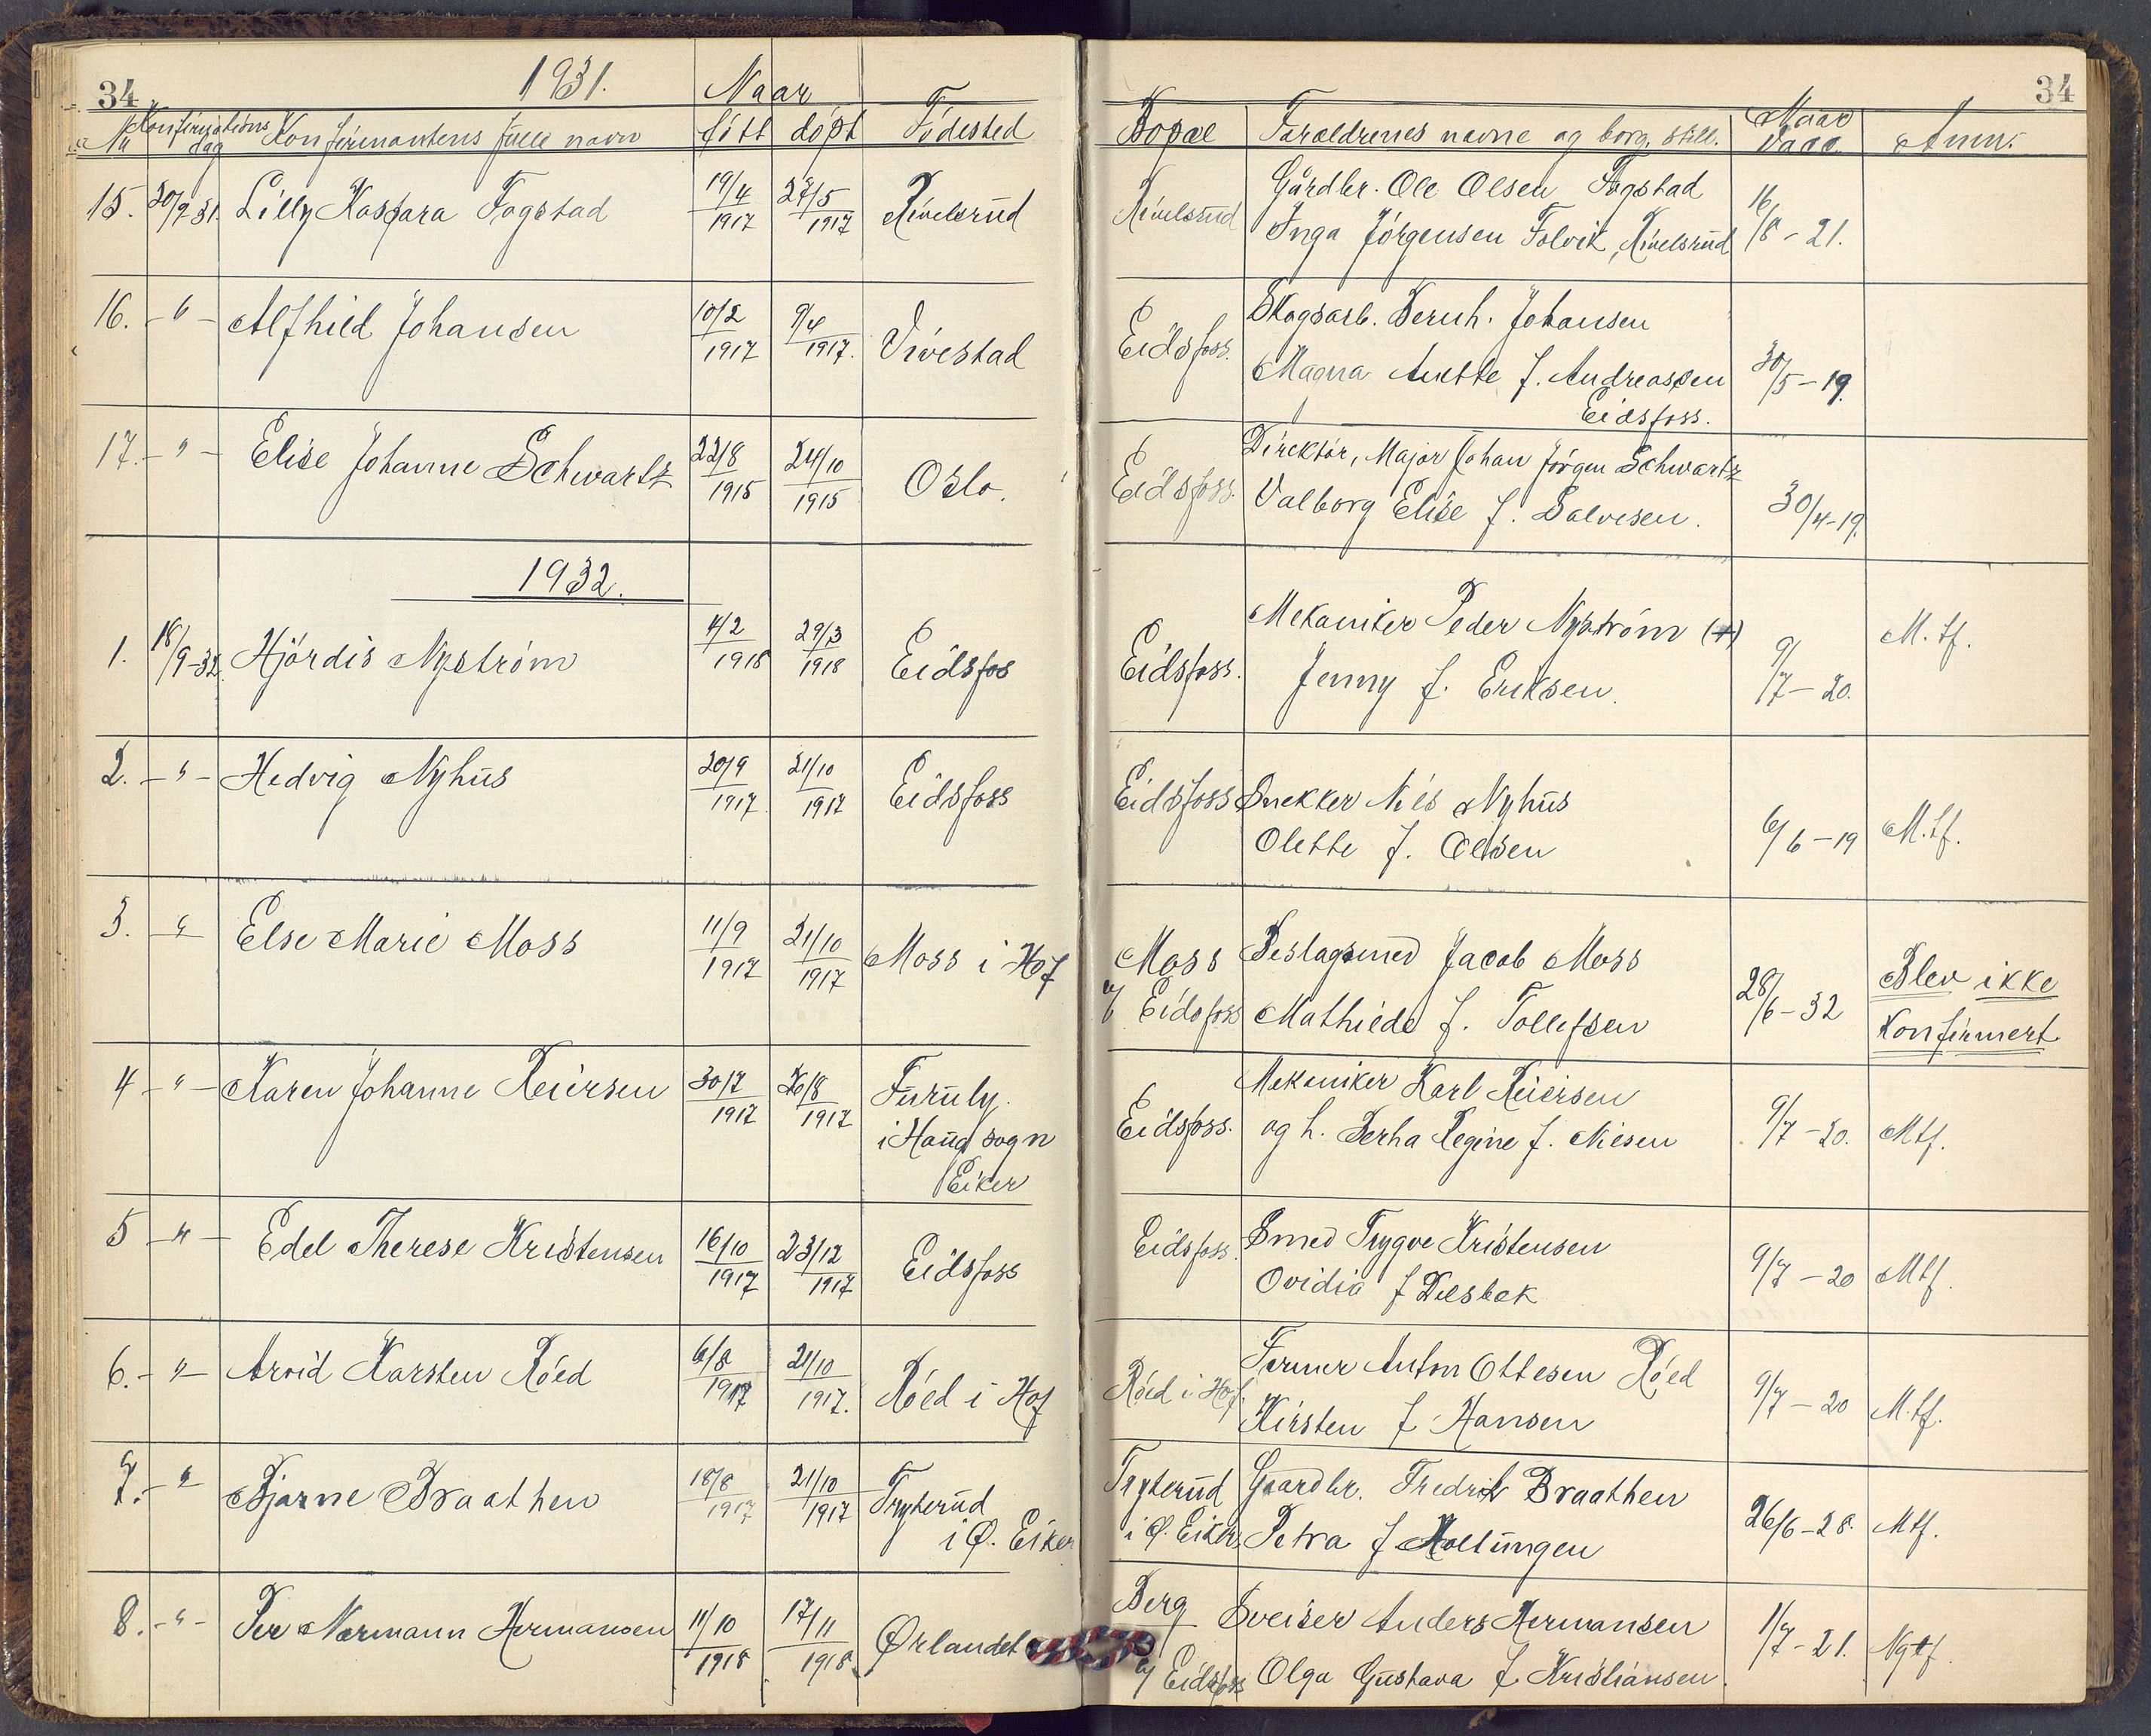 34
1931.
Naar
Nu Konfirmations dag Konfirmantens fulle navn fött döpt Födested
15. 30/9 31. Lilly Kaspara Fogstad 19/4 1917 27/5 1917 Rivelsrud
16. -"- Alfhild Johansen 10/2 1917 9/4 1917. Vivestad
17. -"- Elise Johanne Schwartz 22/8 1915 24/10 1915 Oslo.
1932.
1. 18/9-32. Hjördis Nyström 4/2 1918 29/3 1918 Eidsfos
2. -"- Hedvig Nyhus 20/9 1917. 21/10 1917 Eidsfoss
3. -"- Else Marie Moss 11/9 1917 21/10 1917 Moss i Hof
4 -"- Karen Johanne Reiersen 30/7 1917 26/8 1917 Furuly.
i Haug sogn
Eiker
5 -"- Edel Therese Kristensen 16/10 1917 23/12 1917 Eidsfoss
6. -"- Arvid Karsten Röed 6/8 1917 21/10 1917. Röed i Hof
7. -"- Bjarne Braathen 18/8 1917 21/10 1917 Tryterud
i Ø. Eiker
8. -"- Per Normann Hermansen 11/10 1918 17/11 1918. Ørlandet
34
Bopæl Foraldrenes navne og borg. still. Naar vacc. Anm.
Rivelsrud Gårdbr. Ole Olsen Fogstad
Inga Jörgensen Folvik, Rivelsrud 16/8-21.
Eidsfoss. Skogsarb. Bernh. Johansen
Magna Anette f. Andreassen 30/5-19.
Eidsfoss.
Eidsfoss. Direktör, Major Johan Jörgen Schwartz
Valborg Elise f. Salvesen. 30/4-19.
Eidsfoss. Mekaniker Peder Nyström (+) M. tf.
Jenny f. Eriksen. 9/7-20.
Eidsfoss Snekker Nils Nyhus
Olette f. Olsen 6/6-19 M. tf.
Moss Beslagsmed Jacob Moss Blev ikke
v/ Eidsfoss Mathilde f. Tollefsen 28/6-32 Konfirmert
Eidsfoss. Mekaniker Karl Reiersen
og h. Berha Regine f. Nilsen 9/7-20. Mtf.
Eidsfoss. Smed Trygve Kristensen
Ovidia f Dilsbek 9/7-20 Mtf.
Röed i Hof Former Anton Ottesen Röed
Kirsten f Hansen 9/7-20 M. tf.
Tryterud Gaardbr. Fredrik Braathen
i Ø. Eiker, Petra f Moltungen 26/6-28. Mtf.
Berg Sveiser Anders Hermansen
v/ Eidsfoss Olga Gustava f. Kristiansen. 1/7-21. Nytf.